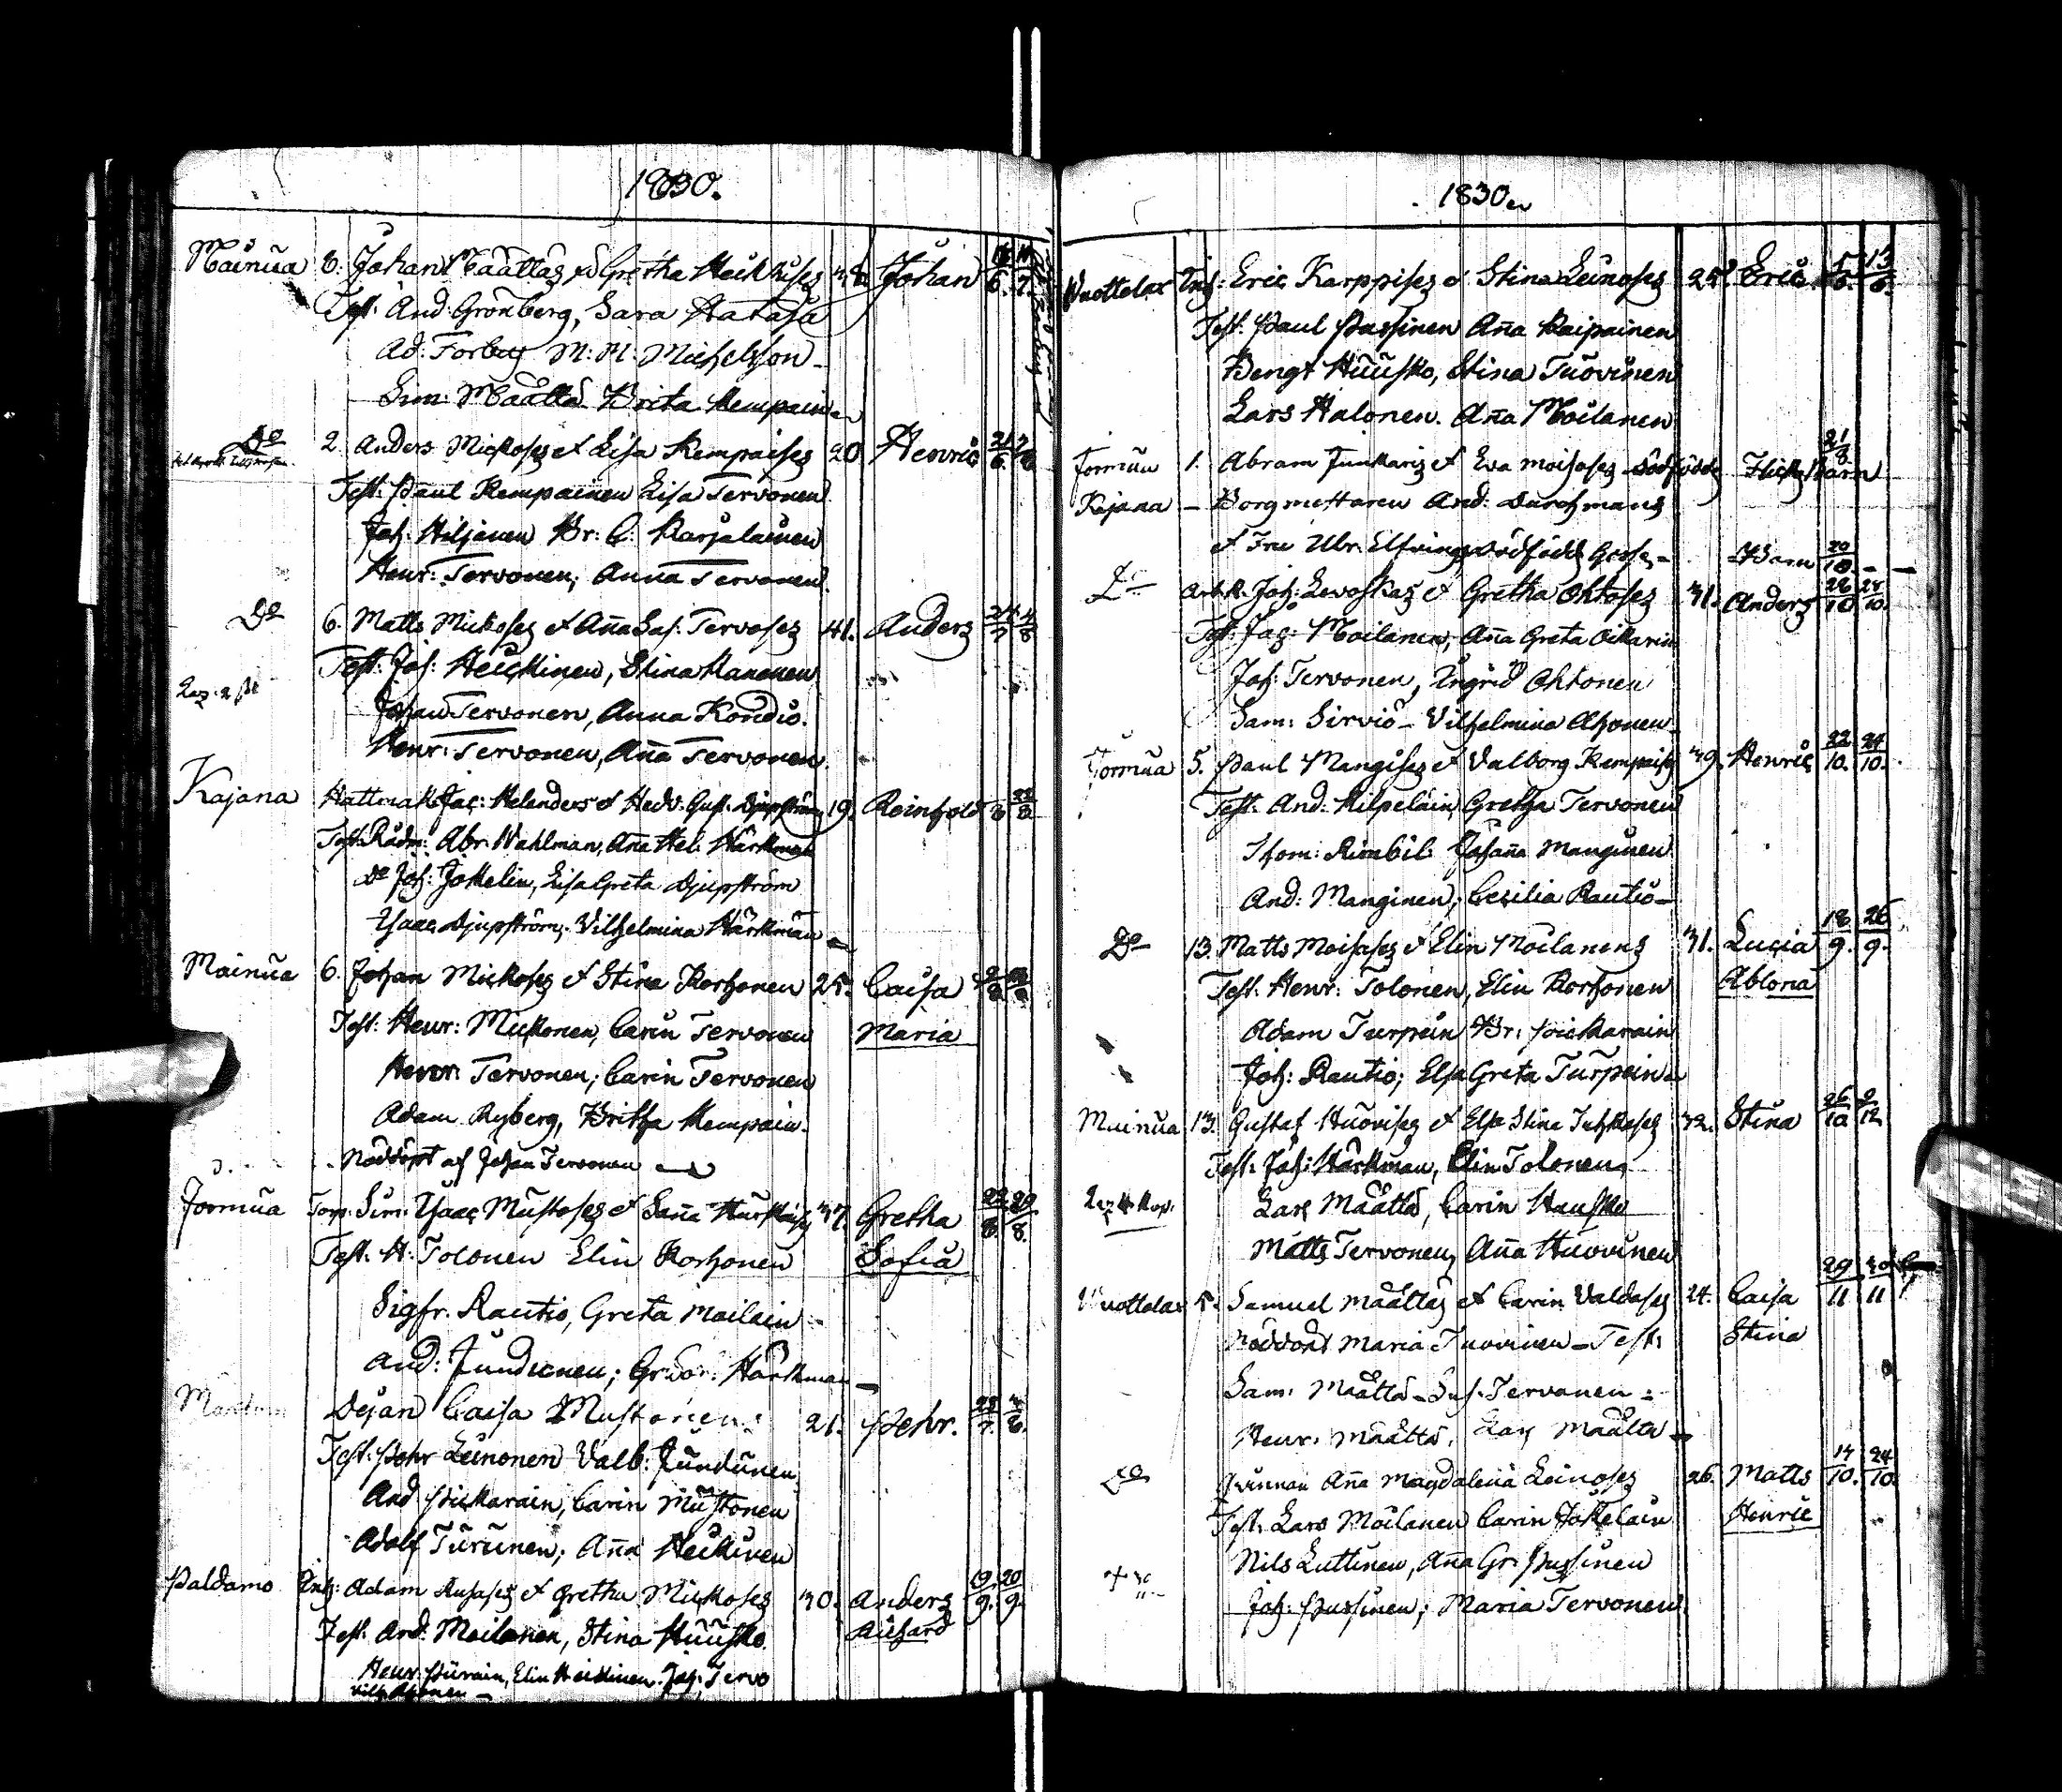 1830.
Mainua 6. Johan Määttäs et Gretha Heickises Johan 6. 7.
Test: And: Grönberg, Sara Hatasa
Ad: Forbus M: M: Michelsson
Sim: Määttä Brita Kempainen
Do 2. Anders Mickoses et Lisa Kempaises 20 Henric
Test: Paul Kempainen Lisa Tervonen
Joh: Hiljanen Br: C: Karjalainen
Henr: Tervonen, Anna Tervonen
Do 6. Matts Mickoses et Aña Sus: Tervoses 41. Anders
Test: Joh: Heickinen, Stina Kananen
Johan Tervonen, Anna Kondio.
Henr: Tervonen, Aña Tervonen
Kajana Hattmak: Jac: Helenders et Hedv: Gust: Djupström 19. Reinhold 22/8
Test: Rådm: Abr: Wahlman, Aña Hel: Härkman
Do Joh: Jokelin, Lisa Greta Djupström
Isaac Djupström, Vilhelmina Härkman
Mainua 6. Johan Mickoses et Stina Korhonen 25. Caisa
Test: Henr: Mickonen, Carin Tervonen Maria
Henr: Tervonen; Carin Tervonen
Adam Ryberg, Britha Kempain.
Nöddöpt af Johan Tervonen
Jormua Torp. Sim: Isaac Mustoses et Saña Hurskaises 37. Gretha 22/8. 29/8.
Test: H: Tolonen Elin Korhonen Sofia
Sigfr. Rautio, Greta Moilain
And: Jundunen; Gr: Dor: Härkman
Dejan Caisa Mustonen 21. Pehr.
Test: Pehr Leinonen Valb: Jundunen
And Pickarain, Carin Mustonen
Adolf Turunen; Aña Heickinen
Paldamo Inh: Adam Kusases et Gretha Mickoses 30. Anders 19/9. 20/9.
Test. And: Moilanen, Stina Huusko. Richard
Henr: Piirain, Elin Heickinen. Joh: Tervo
Vilh. Ahonen
1830
Vuottolax Inh: Eric Karppises et Stina Leinoses 25. Eric
Test: Paul Passinen Aña Kaipainen
Bengt Huusko, Stina Tuovinen
Lars Halonen. Aña Moilanen
Jormua 1. Abram Junkaris et Eva Moisases dödfödde Flicko Barn 21/8
Kajana – Borgmettaren And: Durchmans
et Fru Ulr: Elfvings dödfödd Gosse Barn 20/10.
Do Arb.k. Joh: Levoskas et Gretha Ohtoses 31. Anders 26/10 28/10.
Test: Jac: Moilanen, Aña Greta Oikarin
Joh: Tervonen, Ingrid Ohtonen
Sam: Sirviö – Vilhelmina Ahonen
Jormua 5. Paul Mangises et Valborg Kempaises 39. Henric 22/10. 24/10.
Test: And: Kilpeläin, Gretha Tervonen
Thom: Rimbil: Johaña Manginen
And: Manginen; Cecilia Rautio
Do 13. Matts Moisases et Elin Moilanens 31. Lucia 18/9. 26/9.
Test: Henr: Tolonen, Elin Korhonen Ablona
Adam Turpein Br: Pickarain
Joh: Rautio; Elsa Greta Turpein
Mainua 13. Gustaf Huovises et Elsa Stina Juhkoses 32. Stina 26/10 2/12
Test: Joh: Härkman, Elin Tolonen
Lars Määttä, Carin Hausko
Matts Tervonen, Aña Huovinen
Vuottolax 5. Samuel Määttäs et Carin Valdases 24. Caisa 29/11 30/11
Nöddöpt Maria Tuovinen – Test: Stina
Sam: Määttä – Sus: Tervonen
Henr: Määttä, Lars Määttä
Do Qvinnan Aña Magdalena Leinoses 26. Matts 14/10. 24/10.
Test: Lars Moilanen Carin Jokelain Henric
Nils Luttinen, Aña Gr: Passinen
Joh: Passinen; Maria Tervonen